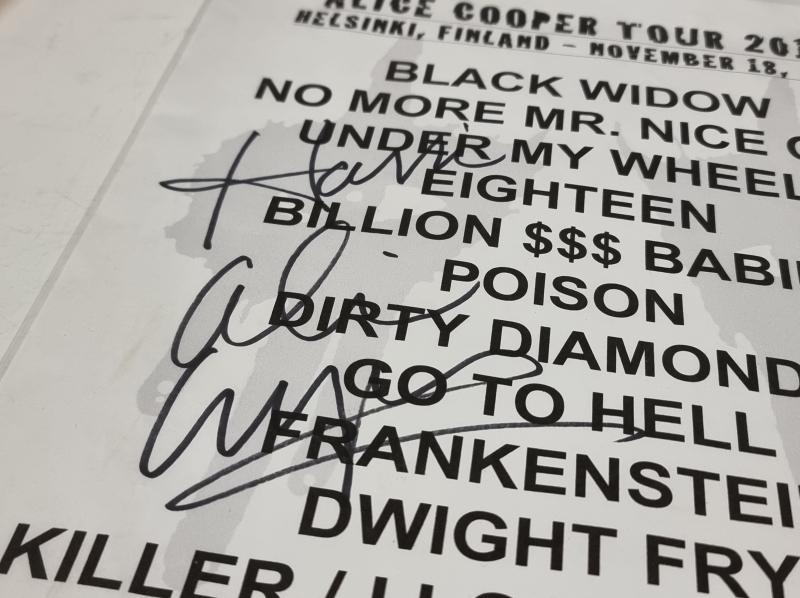 ALICE COOPER TOUR 201
HELSINKI, FINLAND - NOVEMBER 18,
BLACK WIDOW
NO MORE MR. NICE G
UNDER MY WHEEL
EIGHTEEN
BILLION $$$ BABI
POISON
DIRTY DIAMOND
GO TO HELL
FRANKENSTEI
DWIGHT FRY
KILLER / I L
Harri
Alice